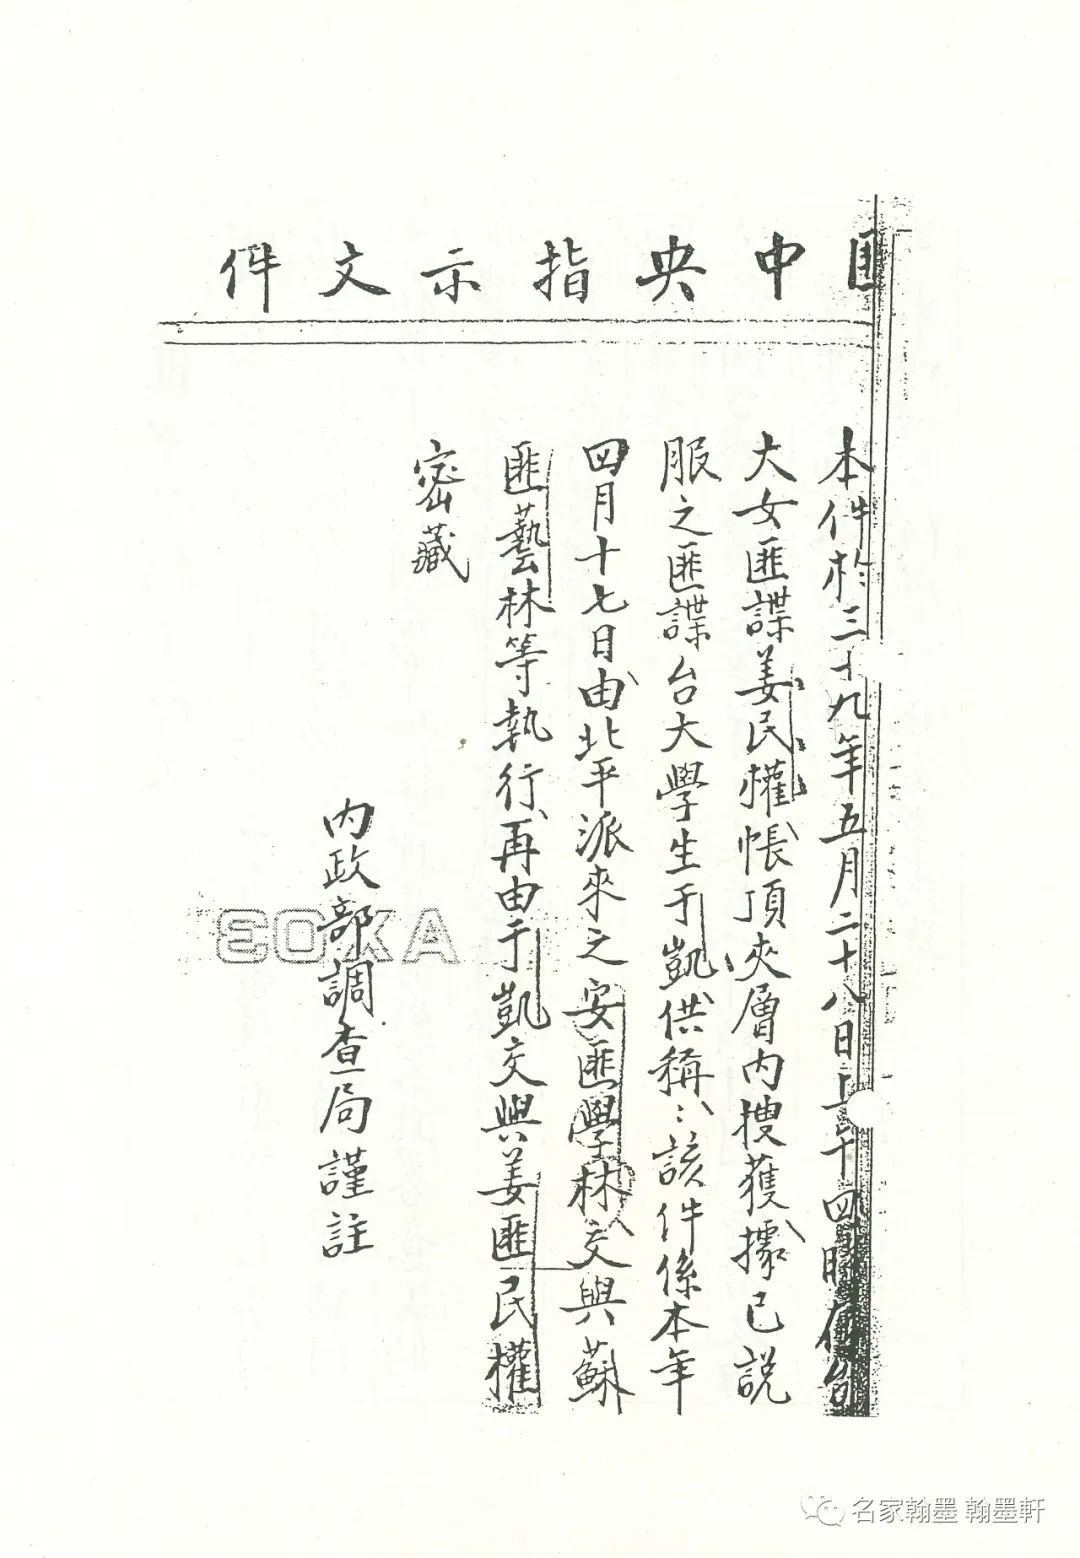 匪中央指示文件
本件於三十九年五月二十八日上午十四時在台
大女匪諜姜民權帳頂夾層內搜獲據已說
服之匪諜台大學生于凱供稱：該件係本年
四月十七日由北平派來之安匪學林交與蘇
匪藝林等執行再由于凱交與姜匪民權
密藏
內政部調查局謹註
AXO3
名家翰墨 翰墨軒